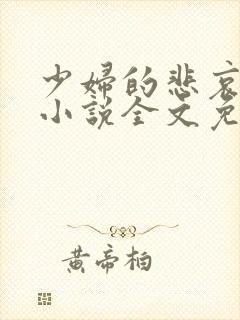 少婦的悲哀
小說全文免
黃帝柏